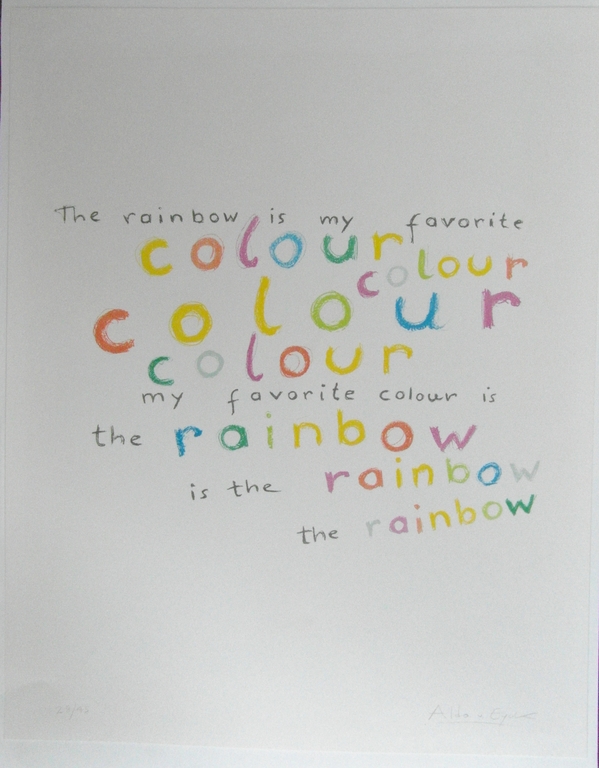 The rainbow is my favorite
colour
colour
colour
colour
my favorite colour is
the rainbow
is the rainbow
the rainbow